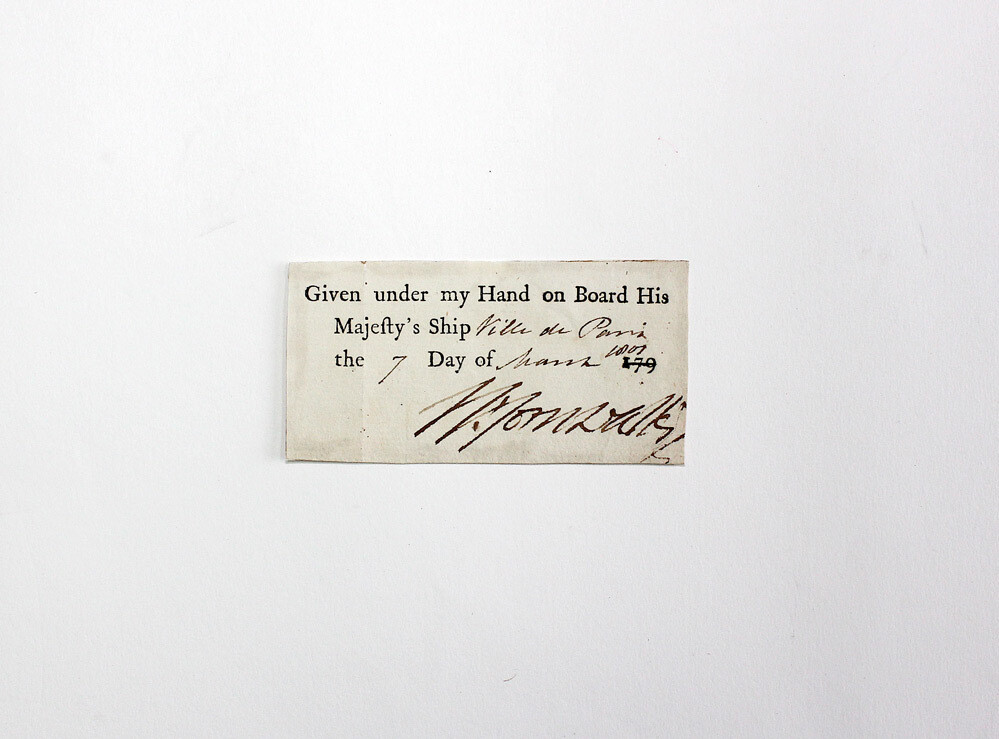 Given under my Hand on Board His
Majeſty's Ship Ville de Paris
the 7 Day of March 1801 179
Wm Cornwallis